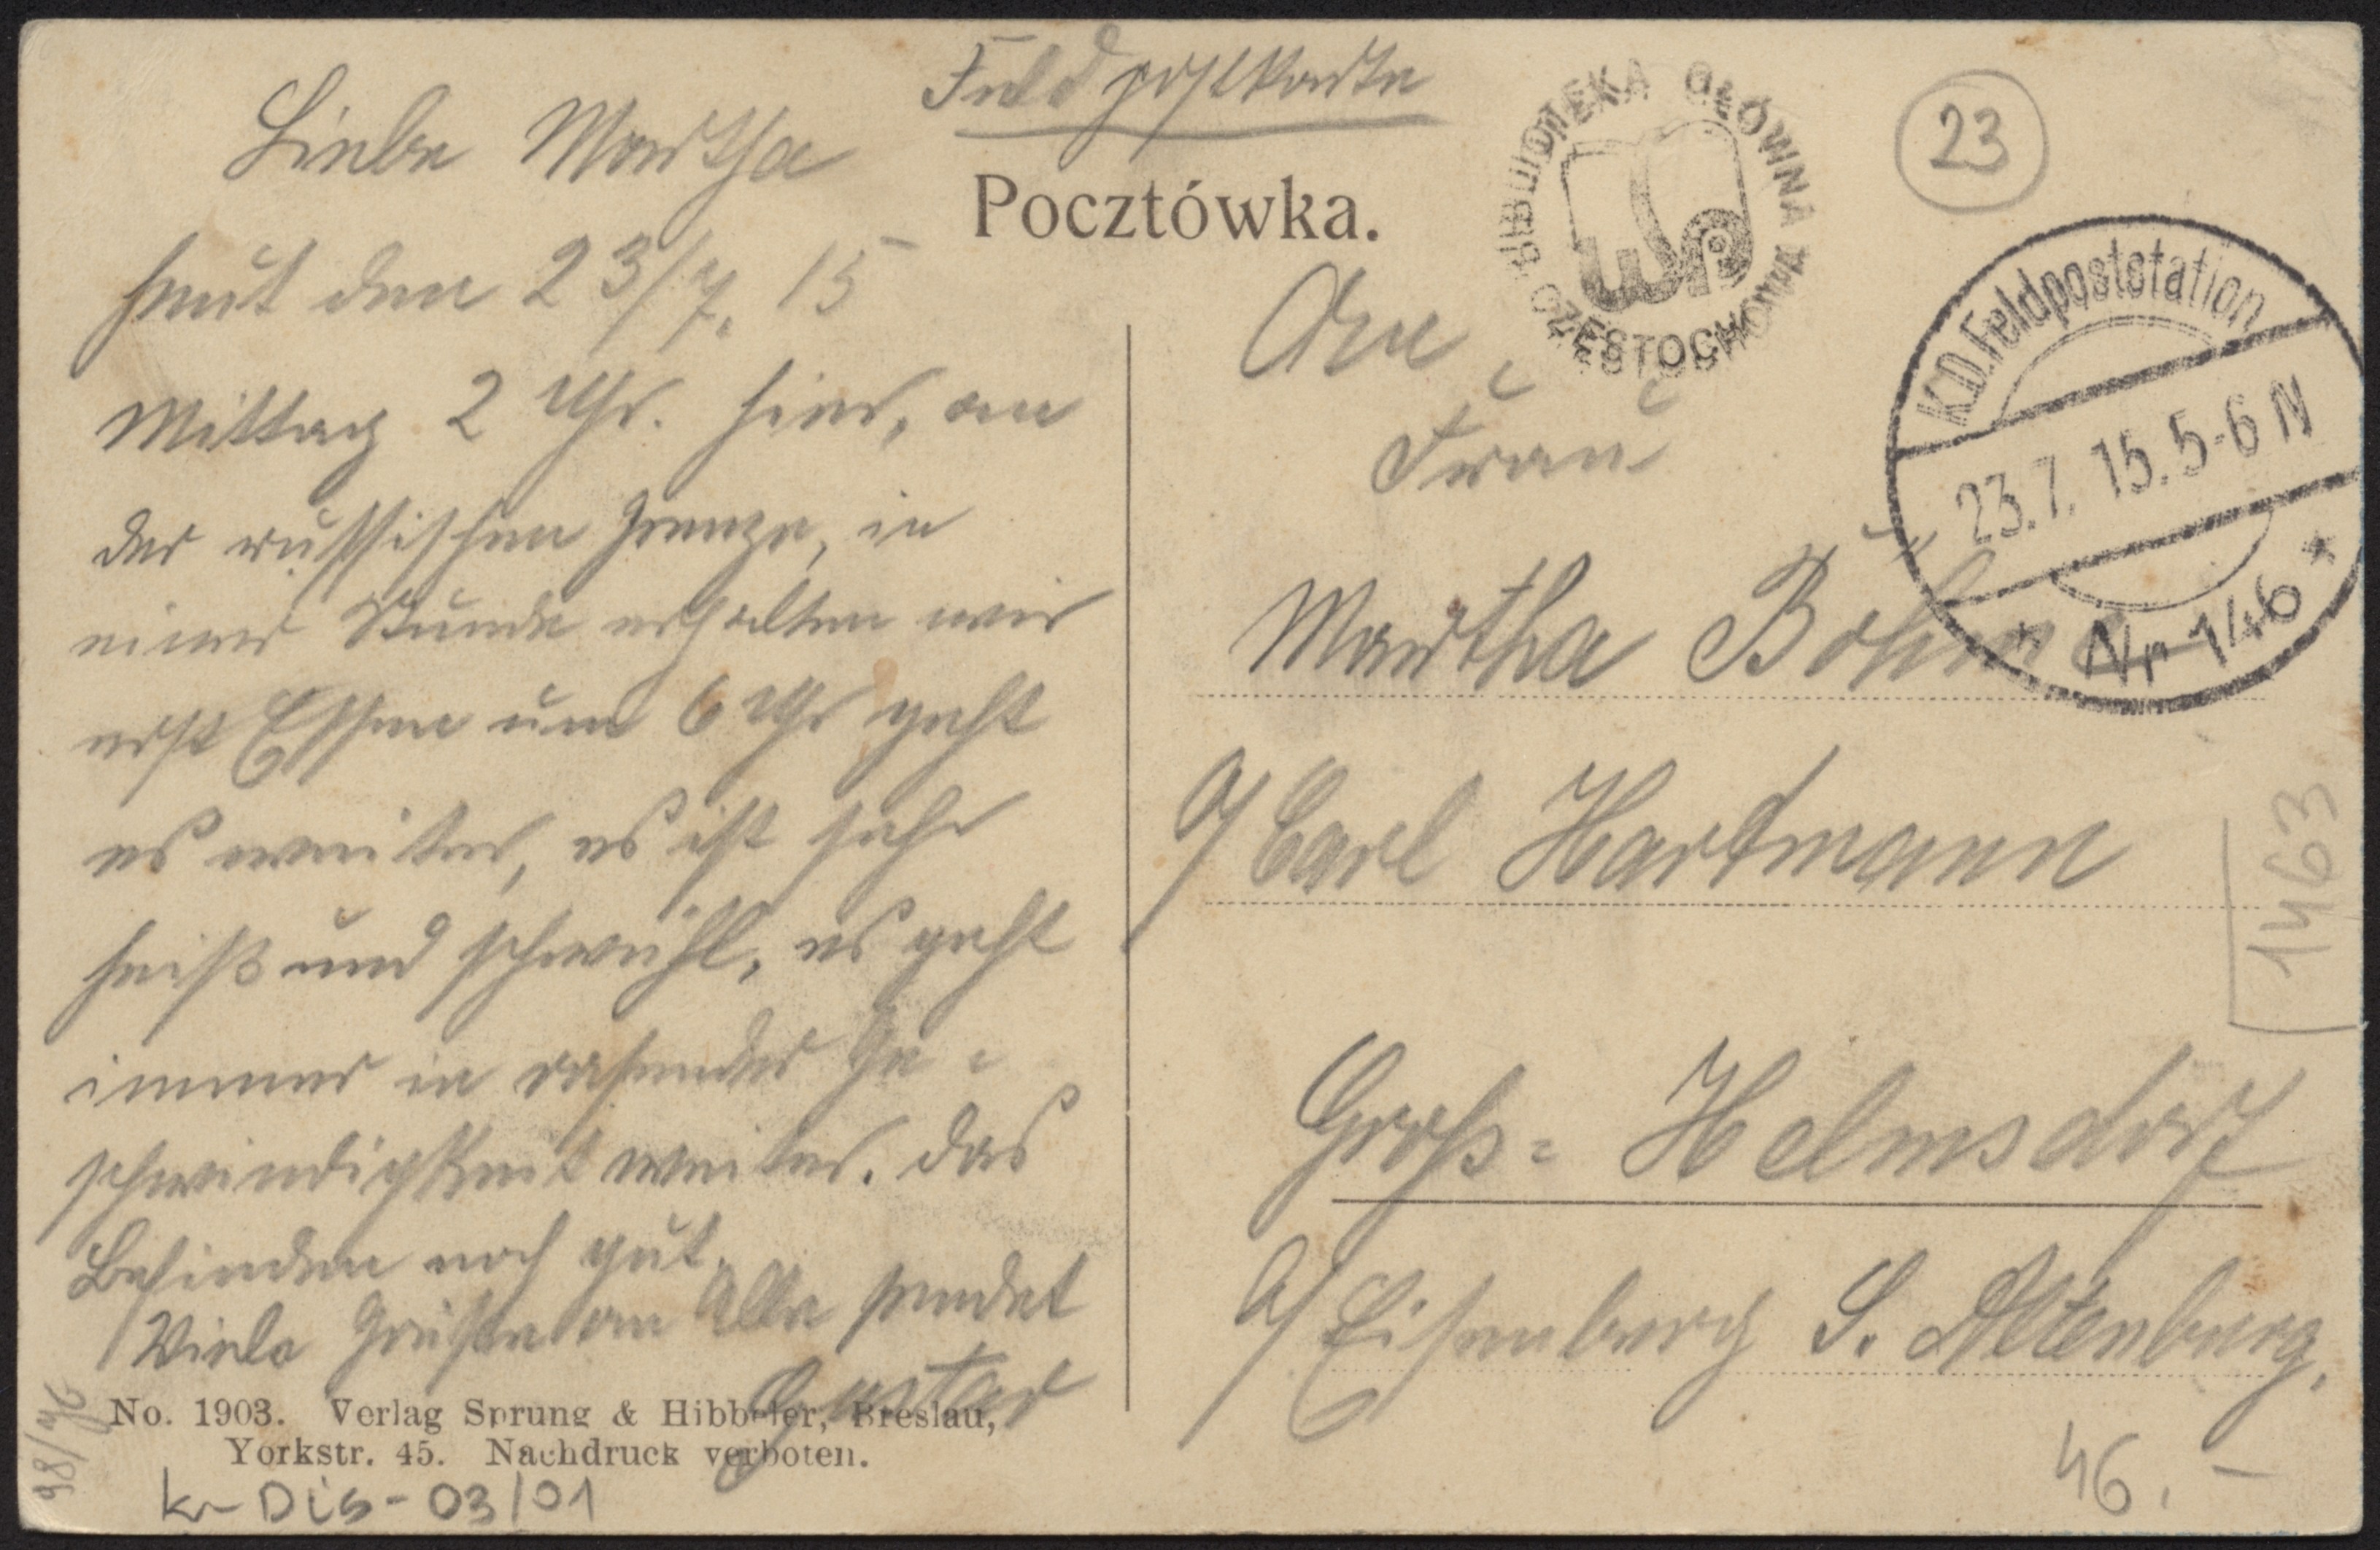 Feldpostkarte
Pocztówka.
Liebe Martha
heut den 23/7. 15
Mittag 2 Uhr. hier, an
der russischen Grenze, in
einer Stunde erhalten wir
erst Essen um 6 Uhr geht
es weiter, es ist sehr
heiß und schwühl, es geht
immer in rasender Ge-
schwindigkeit weiter. Das
Befinden noch gut.
Viele Grüße an Alle sendet
Gustav
No. 1903. Verlag Sprung & Hibbeler, Breslau,
Yorkstr. 45. Nachdruck verboten.
98/76
Kr-Dis-03/01
BIBLIOTEKA GŁÓWNA
WSP
W CZĘSTOCHOWIE
23
K.D. Feldpoststation
23.7. 15. 5-6 N
* Nr 146 *
An
Frau
Martha Böhme
a/ Carl Hartmann
Groß-Helmsdorf
b/ Eisenberg S. Altenburg.
1463
46.-